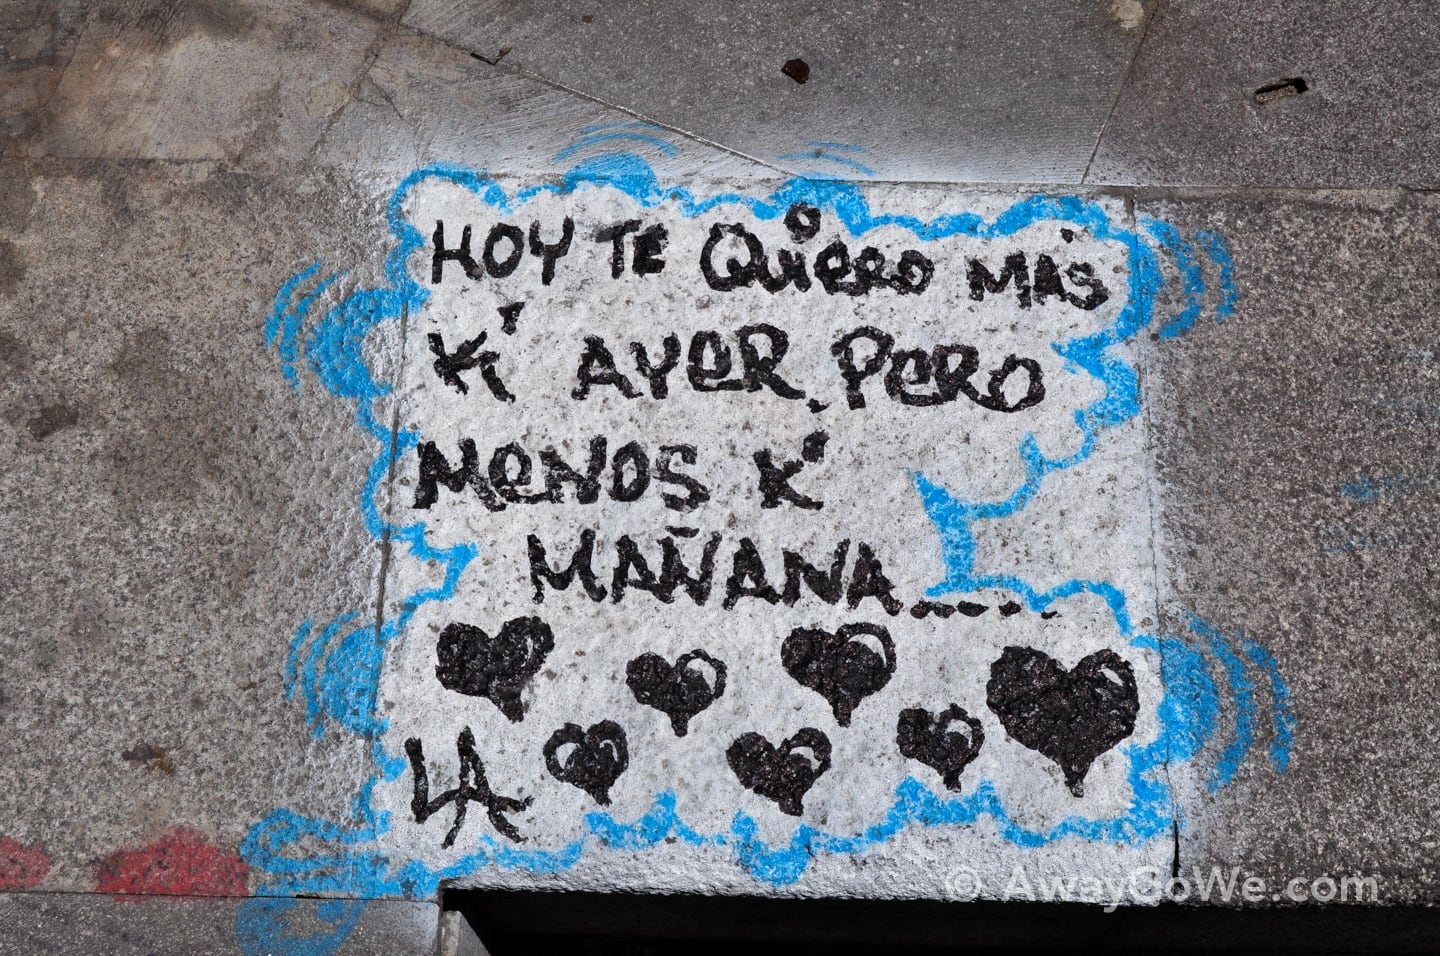 HOY TE QUiERO MAS
K' AYER, PERO
MENOS K'
MAÑANA.....
LA
© AwayGoWe.com